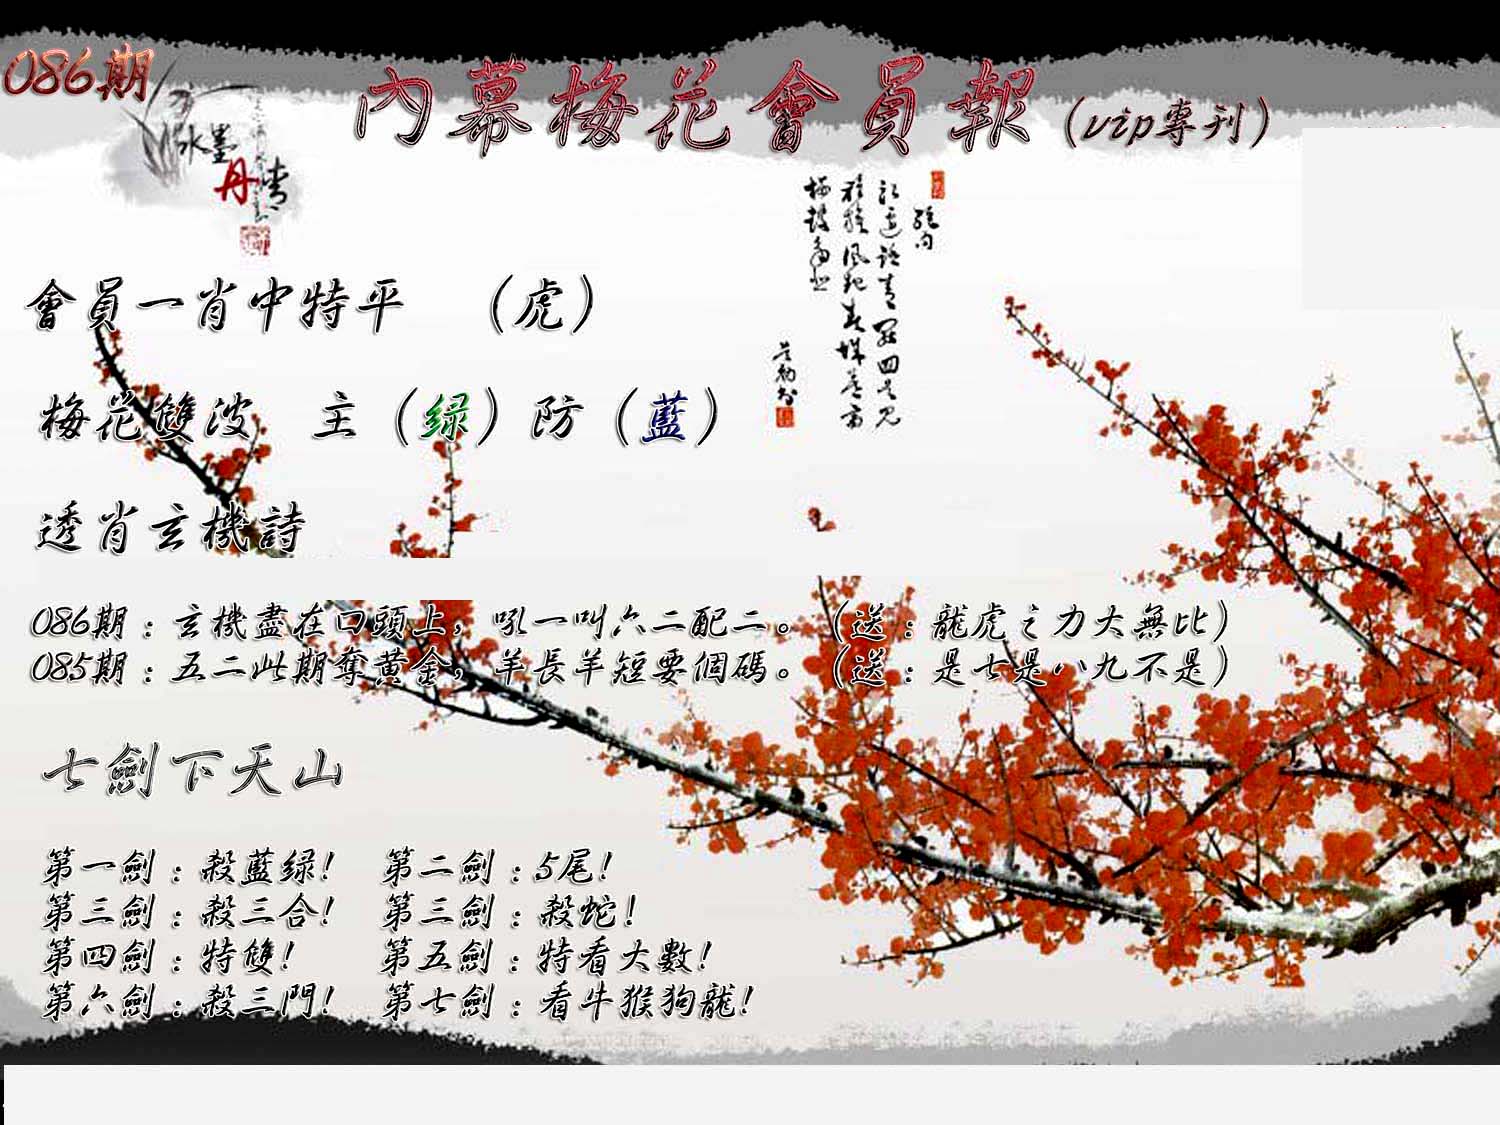 086期
內幕梅花會員報（vip專刊）
水墨
丹青
會員一肖中特平　（虎）
梅花雙波　主（緑）防（藍）
透肖玄機詩
086期：玄機盡在口頭上，吼一叫六二配二。（送：龍虎之力大無比）
085期：五二此期奪黄金，羊長羊短要個碼。（送：是七是八九不是）
七劍下天山
第一劍：殺藍緑！　第二劍：5尾！
第三劍：殺三合！　第三劍：殺蛇！
第四劍：特雙！　第五劍：特看大數！
第六劍：殺三門！　第七劍：看牛猴狗龍！